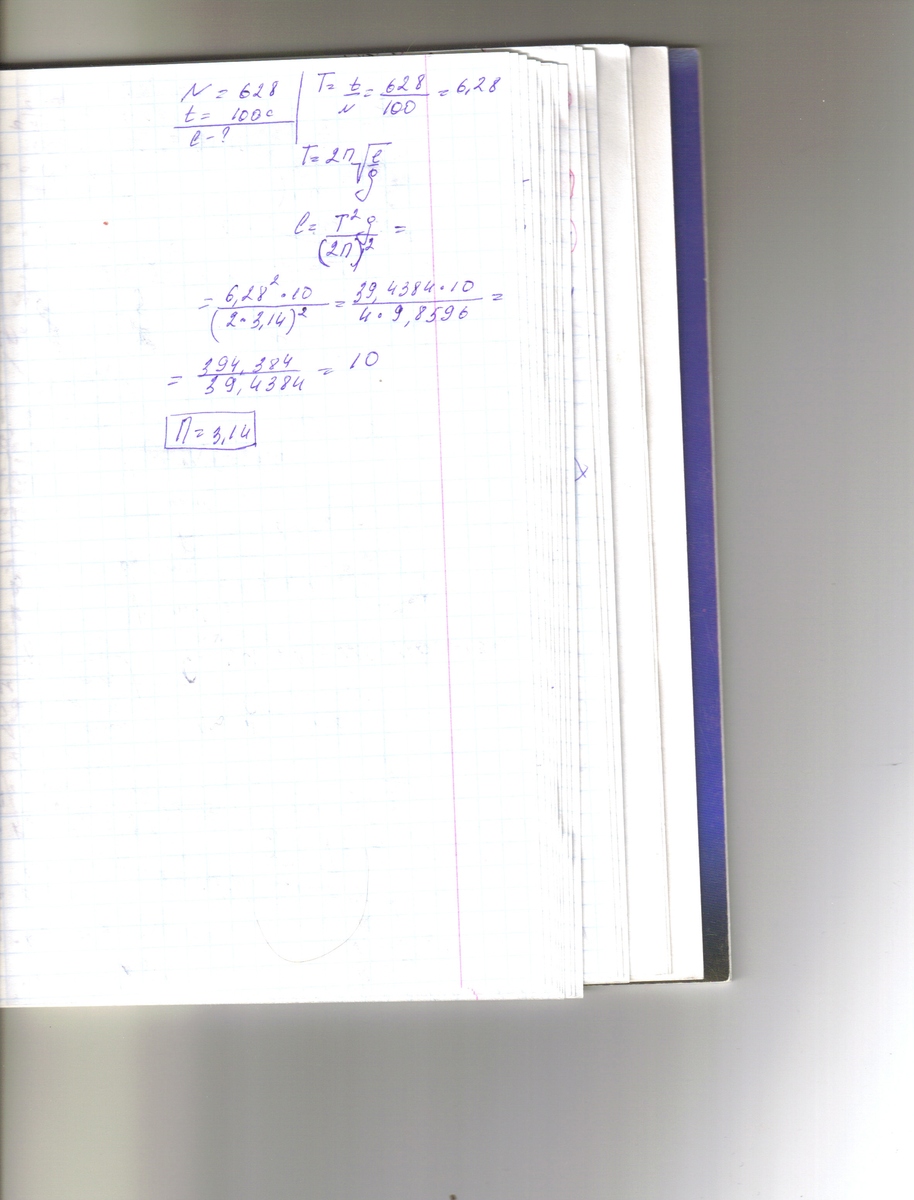 N = 628
t = 100c
l - ?
T = t/N = 628/100 = 6,28
T = 2π√(l/g)
l = T²g/(2π)² =
= 6,28²·10/(2·3,14)² = 39,4384·10/4·9,8596 =
= 394,384/39,4384 = 10
π = 3,14